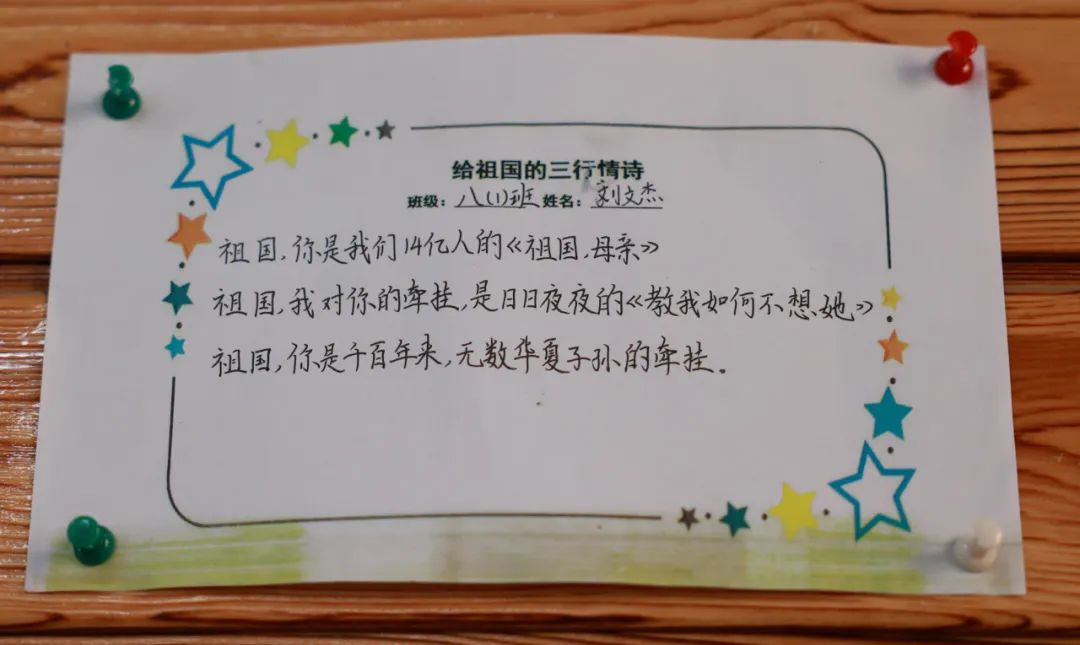 给祖国的三行情诗
班级：八(1)班 姓名：刘文杰
祖国,你是我们14亿人的《祖国,母亲》
祖国,我对你的牵挂,是日日夜夜的《教我如何不想她》
祖国,你是千百年来,无数华夏子孙的牵挂.